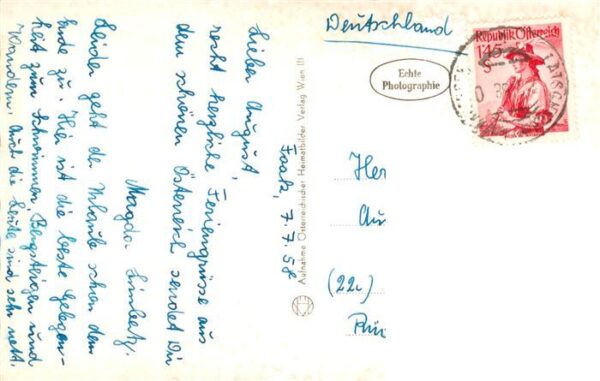 Deutschland
Republik Österreich
1'45
S
Echte
Photographie
Aufnahme Österreichischer Heimatbilder Verlag Wien III
Faak, 7.7.58
Lieber August,
recht herzliche Feriengrüsse aus
dem schönen Österreich sendet Dir
Magda
Leider geht der Urlaub schon dem
Ende zu. Hier ist die beste Gelegen-
heit zum Schwimmen, Bergsteigen und
Wandern. Auch die Leute sind sehr nett.
Her
Au
(22c)